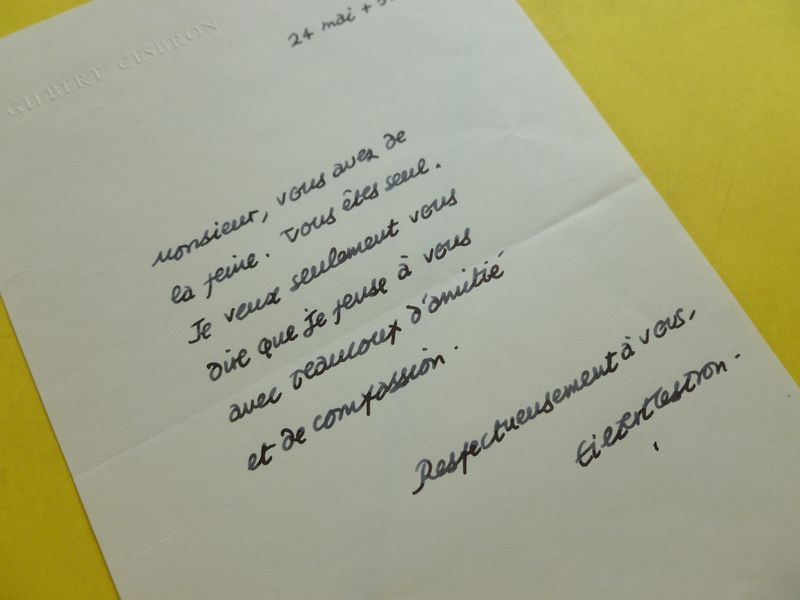 GILBERT CESBRON
24 mai
Monsieur, vous avez de
la peine. Vous êtes seul.
Je veux seulement vous
dire que je pense à vous
avec beaucoup d'amitié
et de compassion.
Respectueusement à vous,
Gilbert Cesbron.